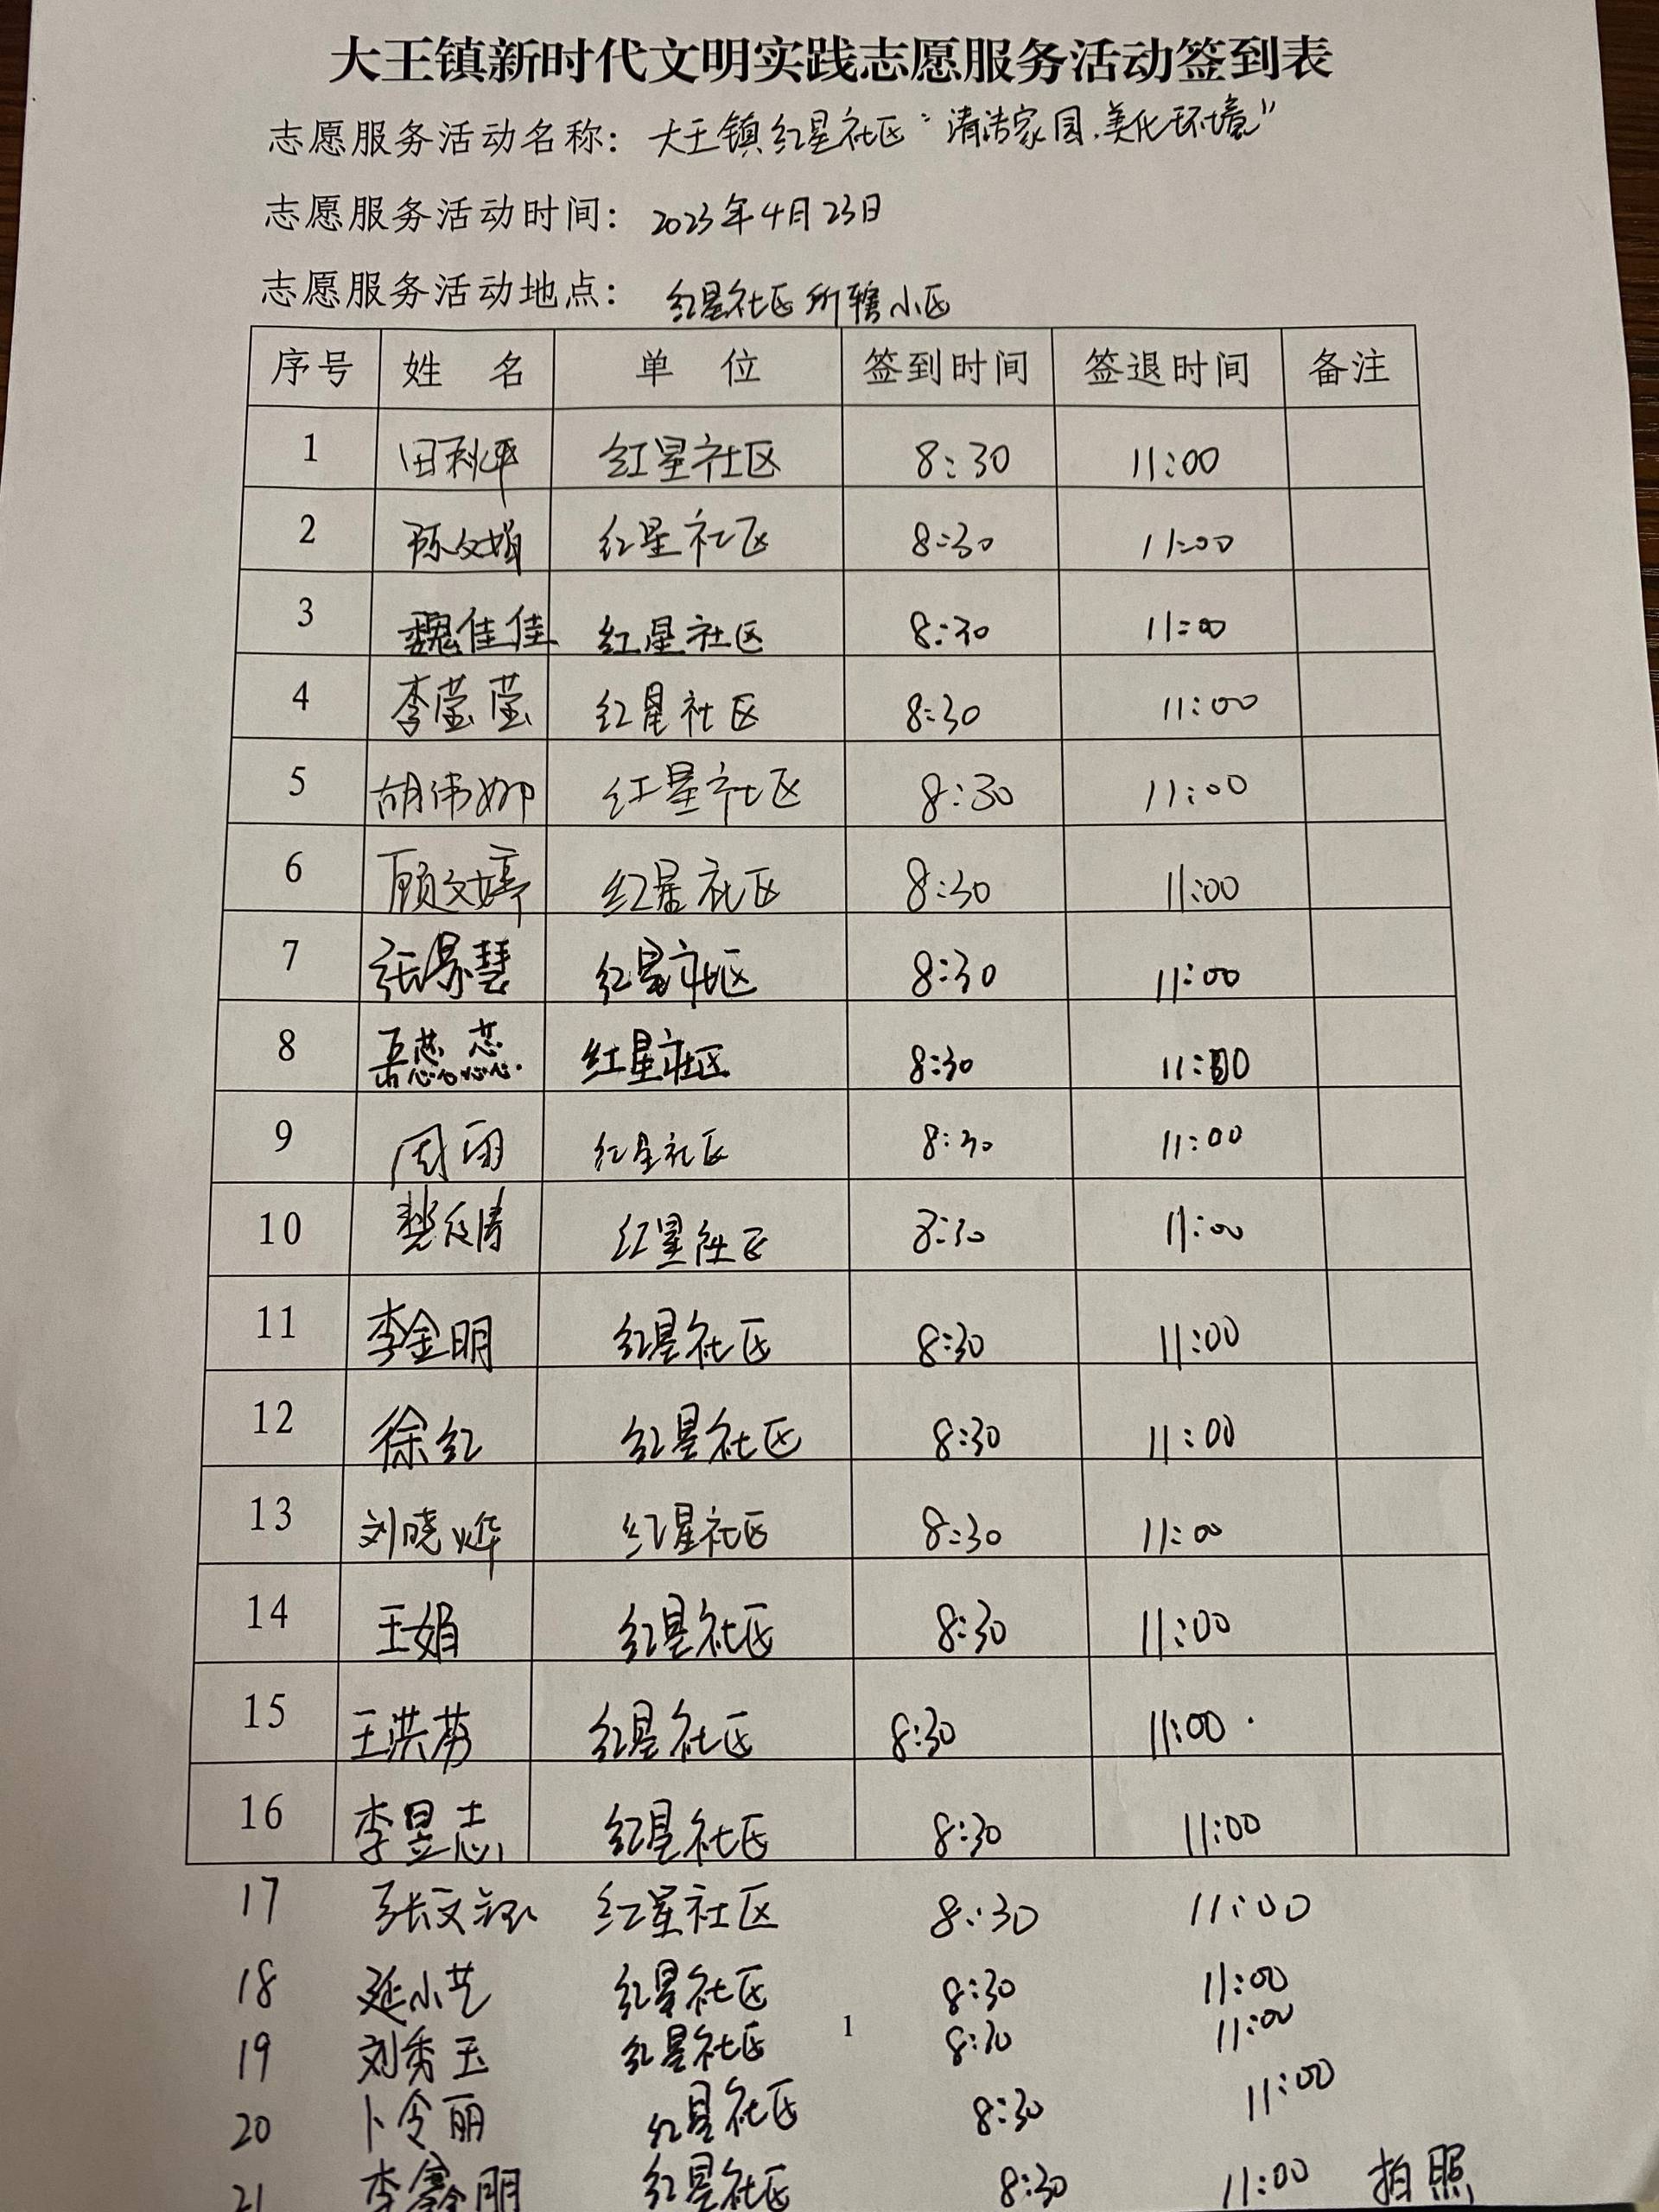 大王镇新时代文明实践志愿服务活动签到表
志愿服务活动名称：大王镇红星社区“清洁家园.美化环境”
志愿服务活动时间：2023年4月23日
志愿服务活动地点：红星社区所辖小区
序号 姓 名 单 位 签到时间 签退时间 备注
1 田秋平 红星社区 8:30 11:00
2 陈文娟 红星社区 8:30 11:00
3 魏佳佳 红星社区 8:30 11:00
4 李莹莹 红星社区 8:30 11:00
5 胡伟娜 红星社区 8:30 11:00
6 顾文婷 红星社区 8:30 11:00
7 张景慧 红星社区 8:30 11:00
8 红星社区 8:30 11:00
9 周 红星社区 8:30 11:00
10 红星社区 8:30 11:00
11 李金明 红星社区 8:30 11:00
12 徐红 红星社区 8:30 11:00
13 刘晓烨 红星社区 8:30 11:00
14 王娟 红星社区 8:30 11:00
15 王洪 红星社区 8:30 11:00
16 李昱志 红星社区 8:30 11:00
17 张文 红星社区 8:30 11:00
18 延小艺 红星社区 8:30 11:00
1
19 刘秀玉 红星社区 8:30 11:00
20 卜令丽 红星社区 8:30 11:00
21 李鑫朋 红星社区 8:30 11:00 拍照